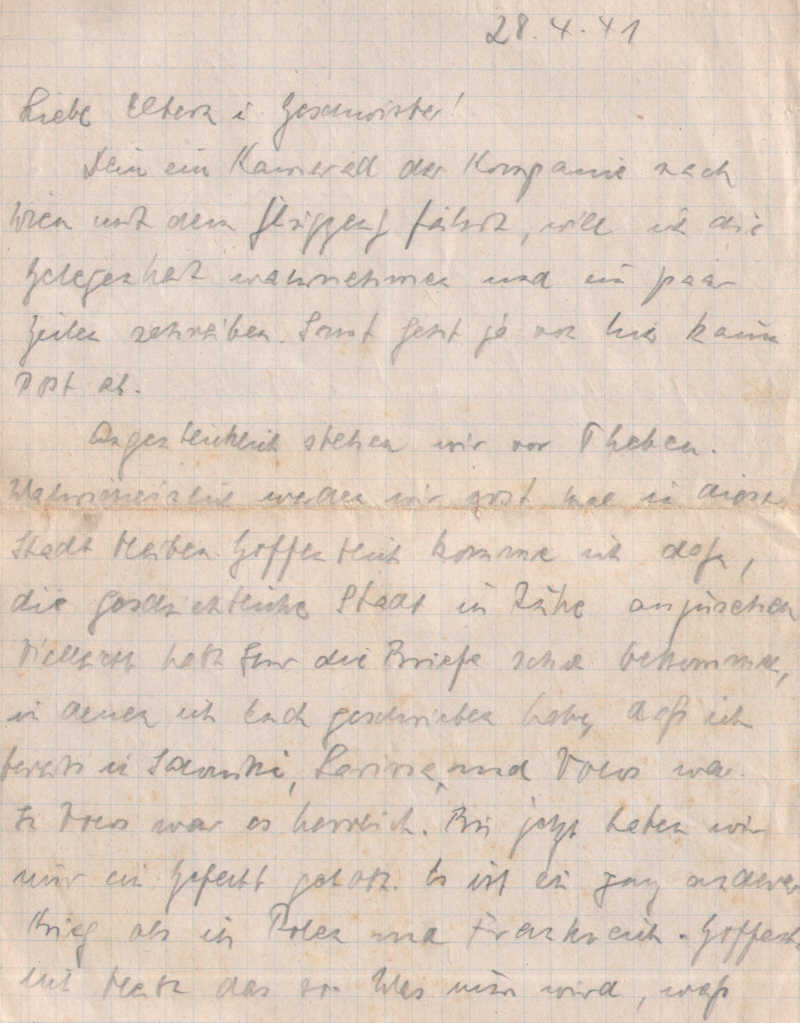 28.4.41
Liebe Eltern u. Geschwister!
Kamerad der Kompanie nach
Wien mit dem Flugzeug fährt, will ich die
Gelegenheit wahrnehmen und ein paar
Zeilen schreiben. Sonst geht ja von hier kaum
Post ab.
Augenblicklich stehen wir vor Theben.
Wahrscheinlich werden wir erst mal in dieser
Stadt bleiben. Hoffentlich komme ich dazu,
die geschichtliche Stadt in Ruhe anzusehen
Vielleicht habt Ihr die Briefe schon bekommen,
in denen ich Euch geschrieben habe, daß ich
bereits in Saloniki, Larissa, und Volos war.
In Volos war es herrlich. Bis jetzt haben wir
nur ein Gefecht gehabt. Es ist ein ganz anderer
Krieg als in Polen und Frankreich. Hoffent-
lich bleibt das so. Was nun wird, weiß